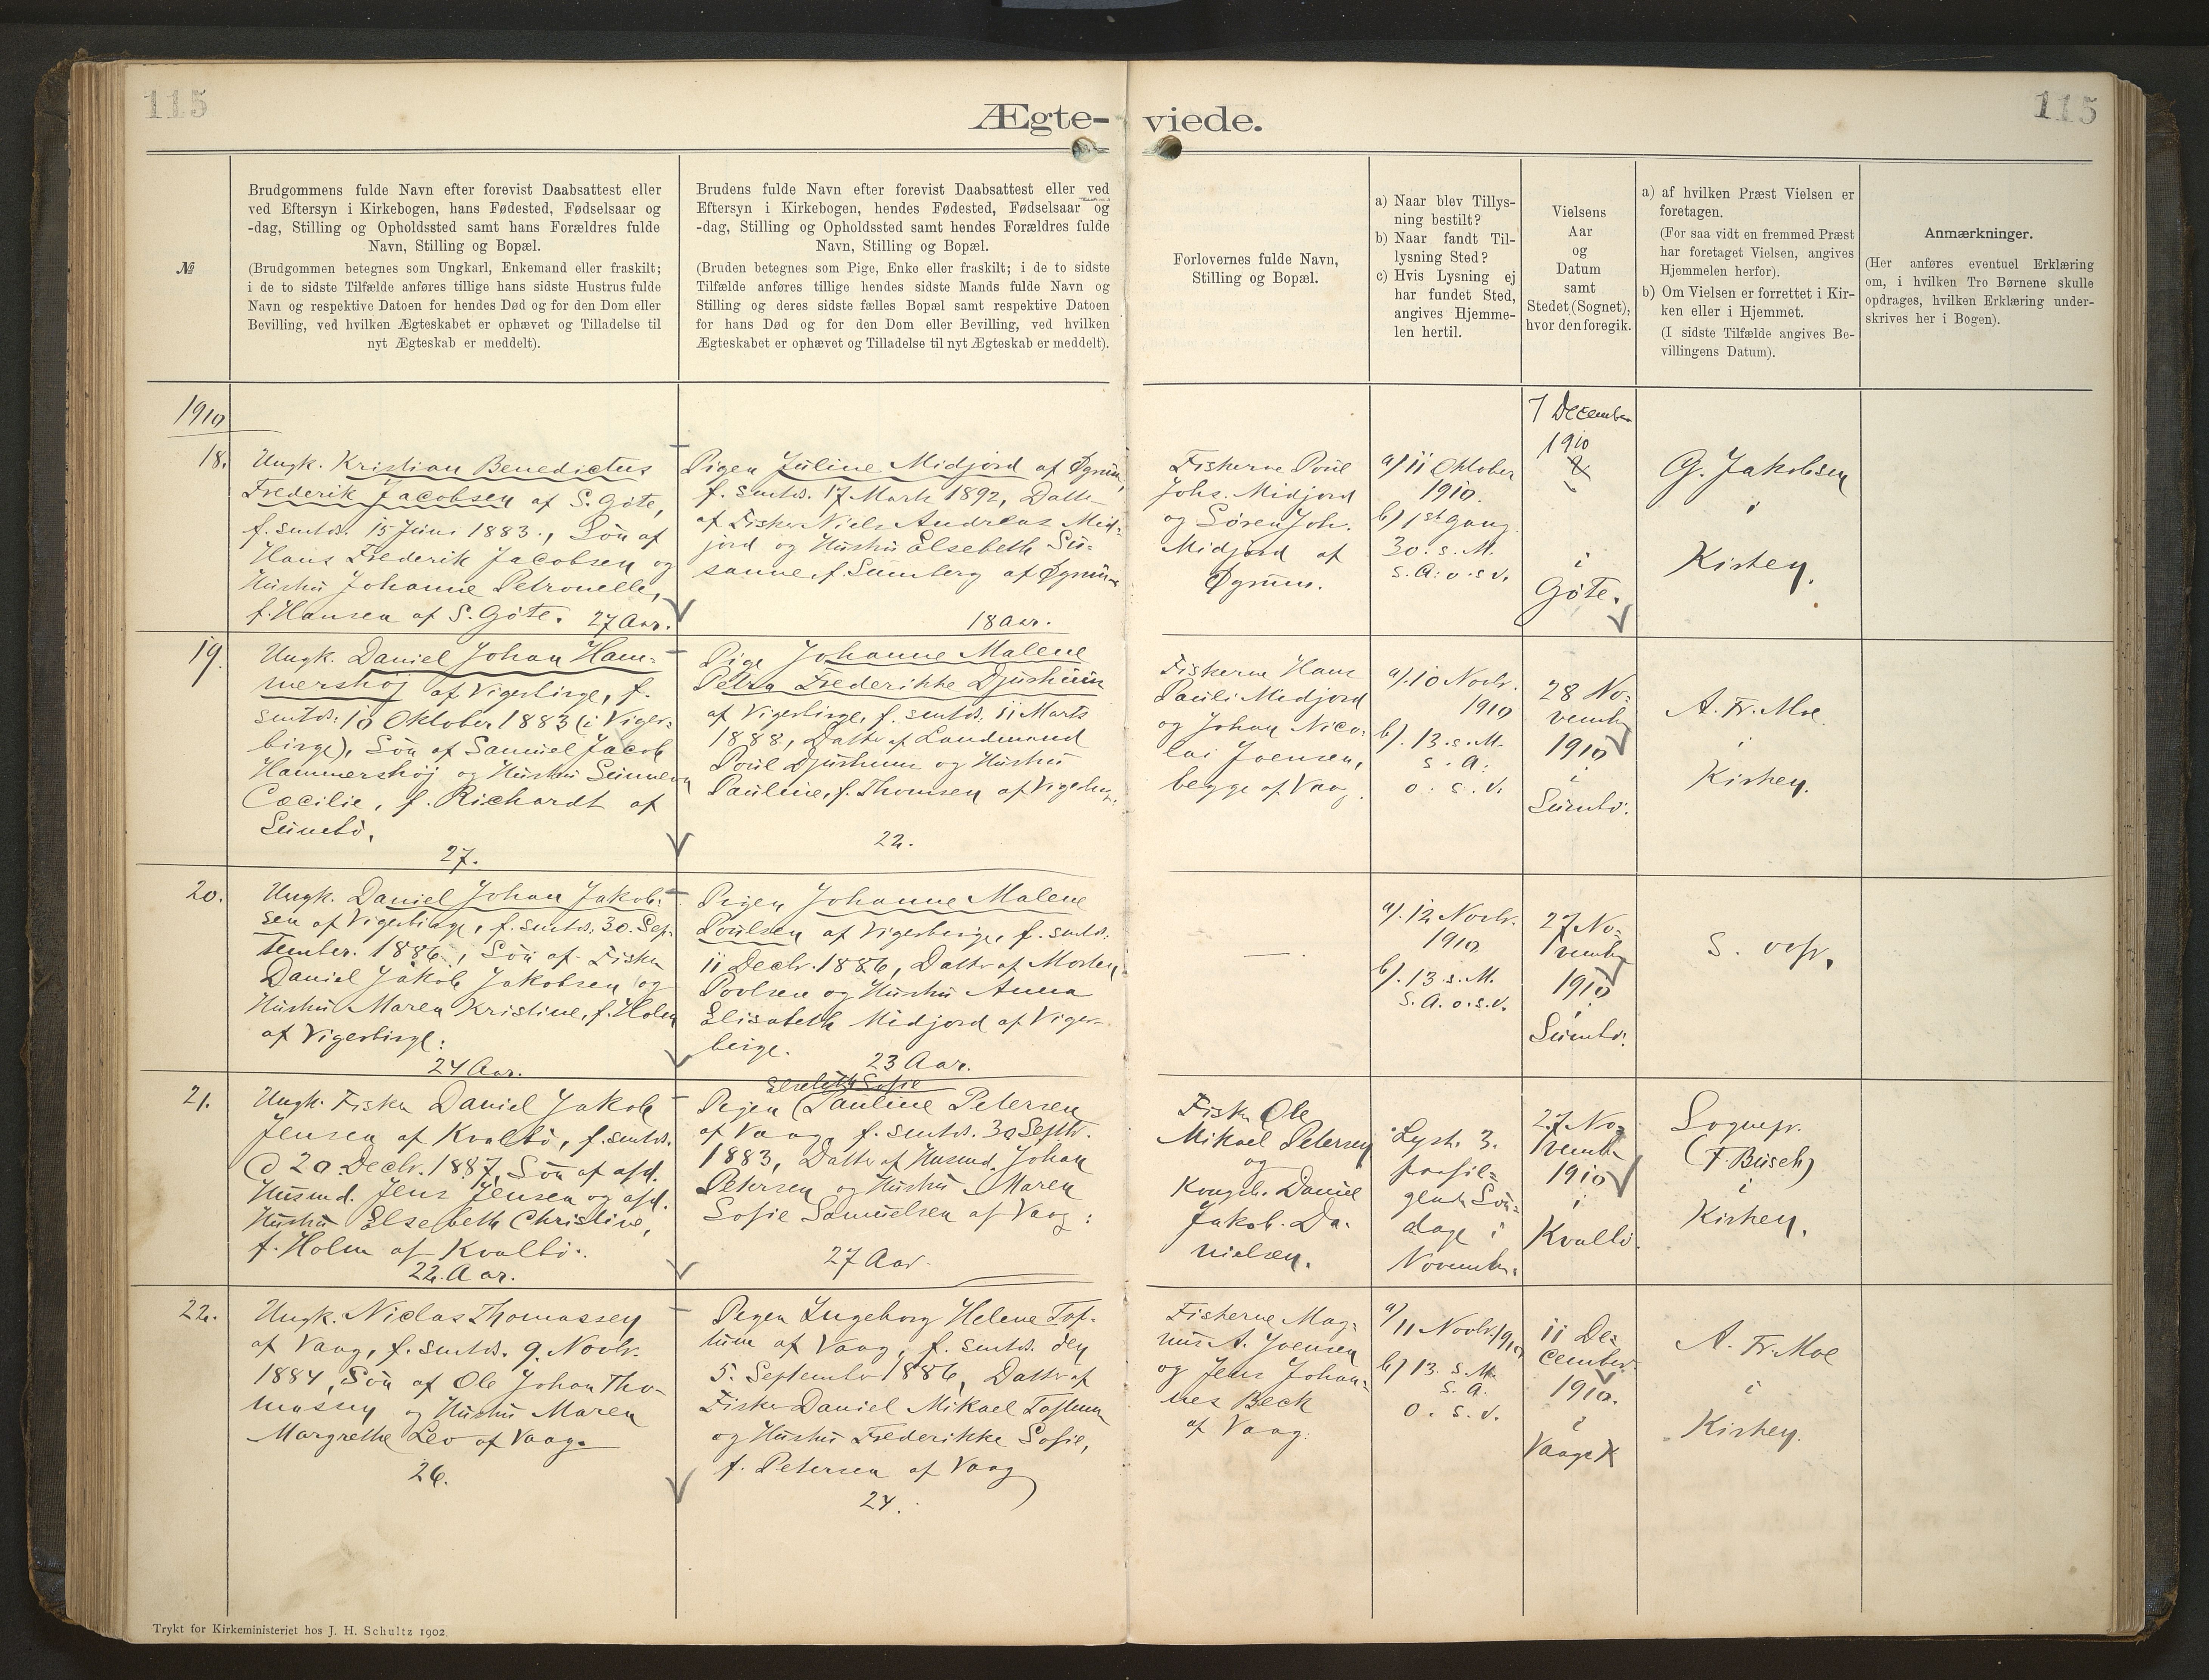 115
115
Ægte-
viede.
№
Brudgommens fulde Navn efter forevist Daabsattest eller
ved Eftersyn i Kirkebogen, hans Fødested, Fødselsaar og
-dag, Stilling og Opholdssted samt hans Forældres fulde
Navn, Stilling og Bopæl.
(Brudgommen betegnes som Ungkarl, Enkemand eller fraskilt;
i de to sidste Tilfælde anføres tillige hans sidste Hustrus fulde
Navn og respektive Datoen for hendes Død og for den Dom eller
Bevilling, ved hvilken Ægteskabet er ophævet og Tilladelse til
nyt Ægteskab er meddelt).
Brudens fulde Navn efter forevist Daabsattest eller ved
Eftersyn i Kirkebogen, hendes Fødested, Fødselsaar og
-dag, Stilling og Opholdssted samt hendes Forældres fulde
Navn, Stilling og Bopæl.
(Bruden betegnes som Pige, Enke eller fraskilt; i de to sidste
Tilfælde anføres tillige hendes sidste Mands fulde Navn og
Stilling og deres sidste fælles Bopæl samt respektive Datoen
for hans Død og for den Dom eller Bevilling, ved hvilken
Ægteskabet er ophævet og Tilladelse til nyt Ægteskab er meddelt).
Forlovernes fulde Navn,
Stilling og Bopæl.
a) Naar blev Tillys-
ning bestilt?
b) Naar fandt Til-
lysning Sted?
c) Hvis Lysning ej
har fundet Sted,
angives Hjemme-
len hertil.
Vielsens
Aar
og
Datum
samt
Stedet (Sognet),
hvor den foregik.
a) af hvilken Præst Vielsen er
foretagen.
(For saa vidt en fremmed Præst
har foretaget Vielsen, angives
Hjemmelen herfor).
b) Om Vielsen er forrettet i Kir-
ken eller i Hjemmet.
(I sidste Tilfælde angives Be-
villingens Datum).
Anmærkninger.
(Her anføres eventuel Erklæring
om, i hvilken Tro Børnene skulle
opdrages, hvilken Erklæring under-
skrives her i Bogen).
1910
18.
Ungk. Kristian Benedictus
Frederik Jacobsen af S. Gøte,
f. smtds. 15 Juni 1883., Søn af
Hans Frederik Jacobsen og
Hustru Johanne Petronelle,
f. Hansen af S. Gøte. 27 Aar.
Pigen Juline Midjord af Øgrum,
f. smtds. 17 Marts 1892, Datter
af Fisker Niels Andreas Mid-
jord og Hustru Elsebeth Su-
sanne, f. Sumberg af Øgrum
18 Aar.
Fiskerne Poul
Johs. Midjord
og Søren Joh.
Midjord af
Øgrum.
a) 11 Oktober
1910.
b) 1ste Gang
30. s. M.
s. A. o. s. v.
7 December
1910
i
Gøte.
G. Jakobsen
i
Kirken.
19.
Ungk. Daniel Johan Ham-
mershøj af Vigerbirge, f.
smtds: 10 Oktober 1883 (i Viger-
birge), Søn af Samuel Jacob
Hammershøj og Hustru Sunneva
Cæcilie, f. Richardt af
Sumbø.
27.
Pige Johanne Malene
Petra Frederikke Djurhuus
af Vigerbirge, f. smtds. 11 Marts
1888, Datter af Landmand
Poul Djurhuus og Hustru
Pauline, f. Thomsen af Vigerbirge.
22.
Fiskerne Hans
Pauli Midjord
og Johan Nico-
lai Joensen,
begge af Vaag.
a). 10 Novbr.
1910
b). 13. s. M.
s. A.
o. s. v.
28 No-
vember
1910
i
Sumbø.
A. Fr. Moe.
i
Kirken.
20.
Ungk. Daniel Johan Jakob-
sen af Vigerbirge, f. smtds. 30. Sep-
tember. 1886., Søn af Fisker
Daniel Jakob Jakobsen og
Hustru Maren Kristine, f. Holm
af Vigerbirge:
24 Aar.
Pigen Johanne Malene
Poulsen af Vigerbirge, f. smtds.
11 Decbr. 1886, Datter af Morten
Poulsen og Hustru Anna
Elisabeth Midjord af Viger-
birge.
23 Aar.
a). 12 Novbr.
1910
b). 13. s. M.
s. A. o. s. v.
27 No-
vember
1910
i
Sumbø.
21.
Ungk. Fisker Daniel Jakob
Jensen af Kvalbø, f. smtds.
d 20 Decbr. 1887, Søn af afd.
Husmd. Jens Jensen og afd.
Hustru Elsebeth Christine,
f. Holm af Kvalbø.
22. Aar.
Pigen (Pauline Petersen
af Vaag, f. smtds. 30 Septbr.
1883, Datter af Husmd. Johan
Petersen og Hustru Maren
Sofie Samuelsen af Vaag:
27 Aar.
Fisker Ole
Mikael Petersen
og
Kongsb. Daniel
Jakob. Da-
nielsen.
Lyst. 3.
paaføl-
gende Søn-
dage i
November.
27. No-
vember
1910
i
Kvalbø.
Sognepr.
(F. Busch)
i
Kirken.
22.
Ungk. Niclas Thomassen
af Vaag, f. smtds. 9. Novbr.
1884, Søn af Ole Johan Tho-
massen og Hustru Maren
Margrethe Leo af Vaag.
26.
Pigen Ingeborg Helene Tof-
tum af Vaag, f. smtds. den
5. September 1886, Datter af
Fisker Daniel Mikael Toftum
og Hustru Frederikke Sofie,
f. Petersen af Vaag
24.
Fiskerne Mag-
nus A. Joensen
og Jens Johan-
nes Beck
af Vaag.
a) 11 Novbr. 1910
b) 13. s. M.
s. A.
o. s. v.
11 De-
cember
1910.
i
Vaags K
A. Fr. Moe
i
Kirken.
Trykt for Kirkeministeriet hos J. H. Schultz 1902.